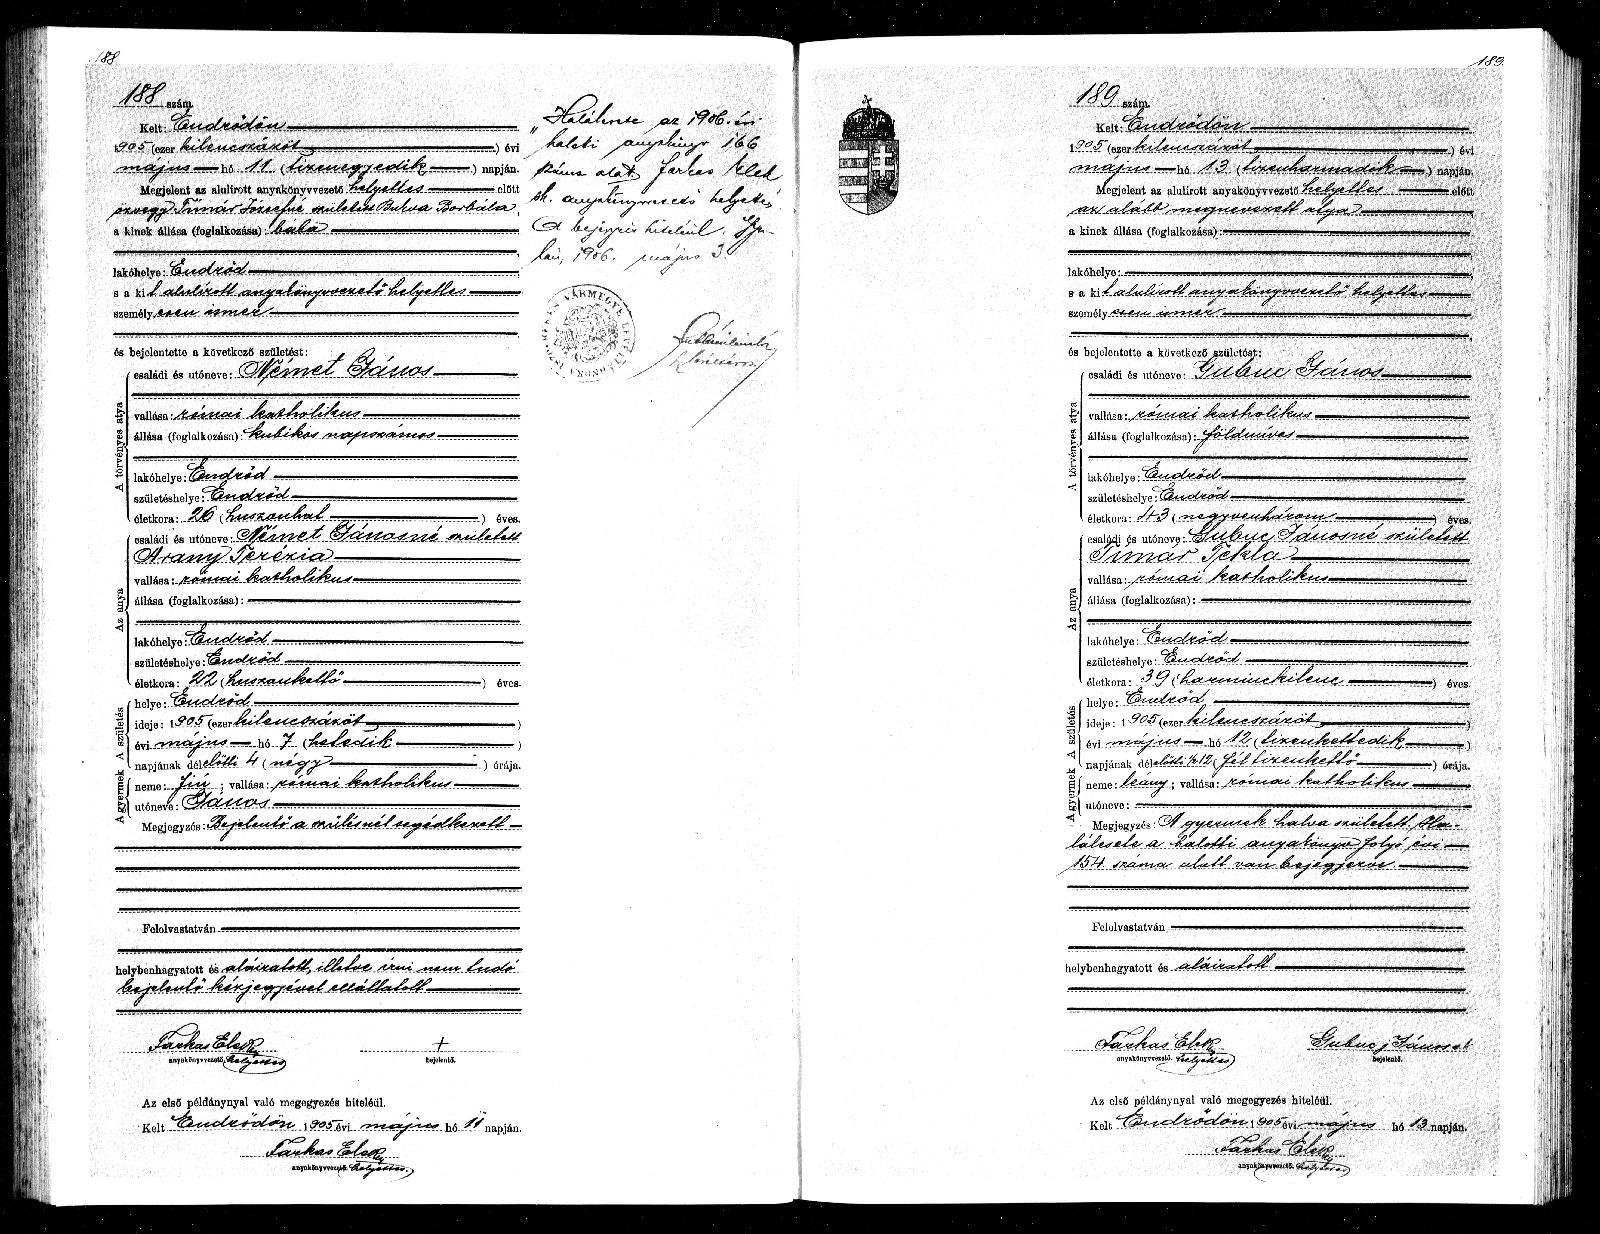 188
188 szám.
Kelt: Endrődön
1905 (ezer kilencszázöt) évi
május hó 11 (tizenegyedik) napján.
Megjelent az alulirott anyakönyvvezető helyettes előtt
özvegy Timár Józsefné született Butva Borbála,
a kinek állása (foglalkozása): bába
lakóhelye: Endrőd
s a kit alulirott anyakönyvvezető helyettes
személyesen ismer
és bejelentette a következő születést:
A törvényes atya
családi és utóneve: Német János
vallása: római katholikus
állása (foglalkozása): kubikos napszámos
lakóhelye: Endrőd
születéshelye: Endrőd
életkora: 26 (huszonhat) éves.
Az anya
családi és utóneve: Német Jánosné született
Arany Terézia
vallása: római katholikus
állása (foglalkozása):
lakóhelye: Endrőd
születéshelye: Endrőd
életkora: 22 (huszonkettő) éves.
A születés
helye: Endrőd
ideje: 1905 (ezer kilencszázöt)
évi május hó 7 (hetedik)
napjának délelőtti 4 (négy) órája.
A gyermek
neme: fiú; vallása: római katholikus
utóneve: János
Megjegyzés: Bejelentő a szülésnél segédkezett
Felolvastatván
helybenhagyatott és aláiratott, illetve irni nem tudó
bejelentő kézjegyével elláttatott
Farkas Elek
+
anyakönyvvezető helyettes
bejelentő.
Az első példánynyal való megegyezés hiteléül.
Kelt Endrődön 1905 évi május hó 11 napján.
Farkas Elek
anyakönyvvezető. helyettes.
„Halálesete az 1906. évi
halotti anyakönyv 166
száma alatt. Farkas Elek
sk. anyakönyvvezető helyettes.
A bejegyzés hiteléül. Gyu-
lán, 1906. május 3.
VÁRMEGYE
189
189 szám.
Kelt: Endrődön
1905 (ezer kilencszázöt) évi
május hó 13 (tizenharmadik) napján.
Megjelent az alulirott anyakönyvvezető helyettes előtt
az alább megnevezett atya
a kinek állása (foglalkozása):
lakóhelye:
s a kit alulirott anyakönyvvezető helyettes
személyesen ismer
és bejelentette a következő születést:
A törvényes atya
családi és utóneve: Gubuc János
vallása: római katholikus
állása (foglalkozása): földmüves
lakóhelye: Endrőd
születéshelye: Endrőd
életkora: 43 (negyvenhárom) éves.
Az anya
családi és utóneve: Gubuc Jánosné született
Timár Tekla
vallása: római katholikus
állása (foglalkozása):
lakóhelye: Endrőd
születéshelye: Endrőd
életkora: 39 (harminckilenc) éves.
A születés
helye: Endrőd
ideje: 1905 (ezer kilencszázöt)
évi május hó 12 (tizenkettedik)
napjának délelőtti ½12 (fél tizenkettő) órája.
A gyermek
neme: leány; vallása: római katholikus
utóneve:
Megjegyzés: A gyermek halva született. Ha-
lálesete a halotti anyakönyv folyó évi
154 száma alatt van bejegyezve.
Felolvastatván
helybenhagyatott és aláiratott
Farkas Elek
Gubucz János
anyakönyvvezető. helyettes
bejelentő.
Az első példánynyal való megegyezés hiteléül.
Kelt Endrődön 1905 évi május hó 13 napján.
Farkas Elek
anyakönyvvezető. helyettes